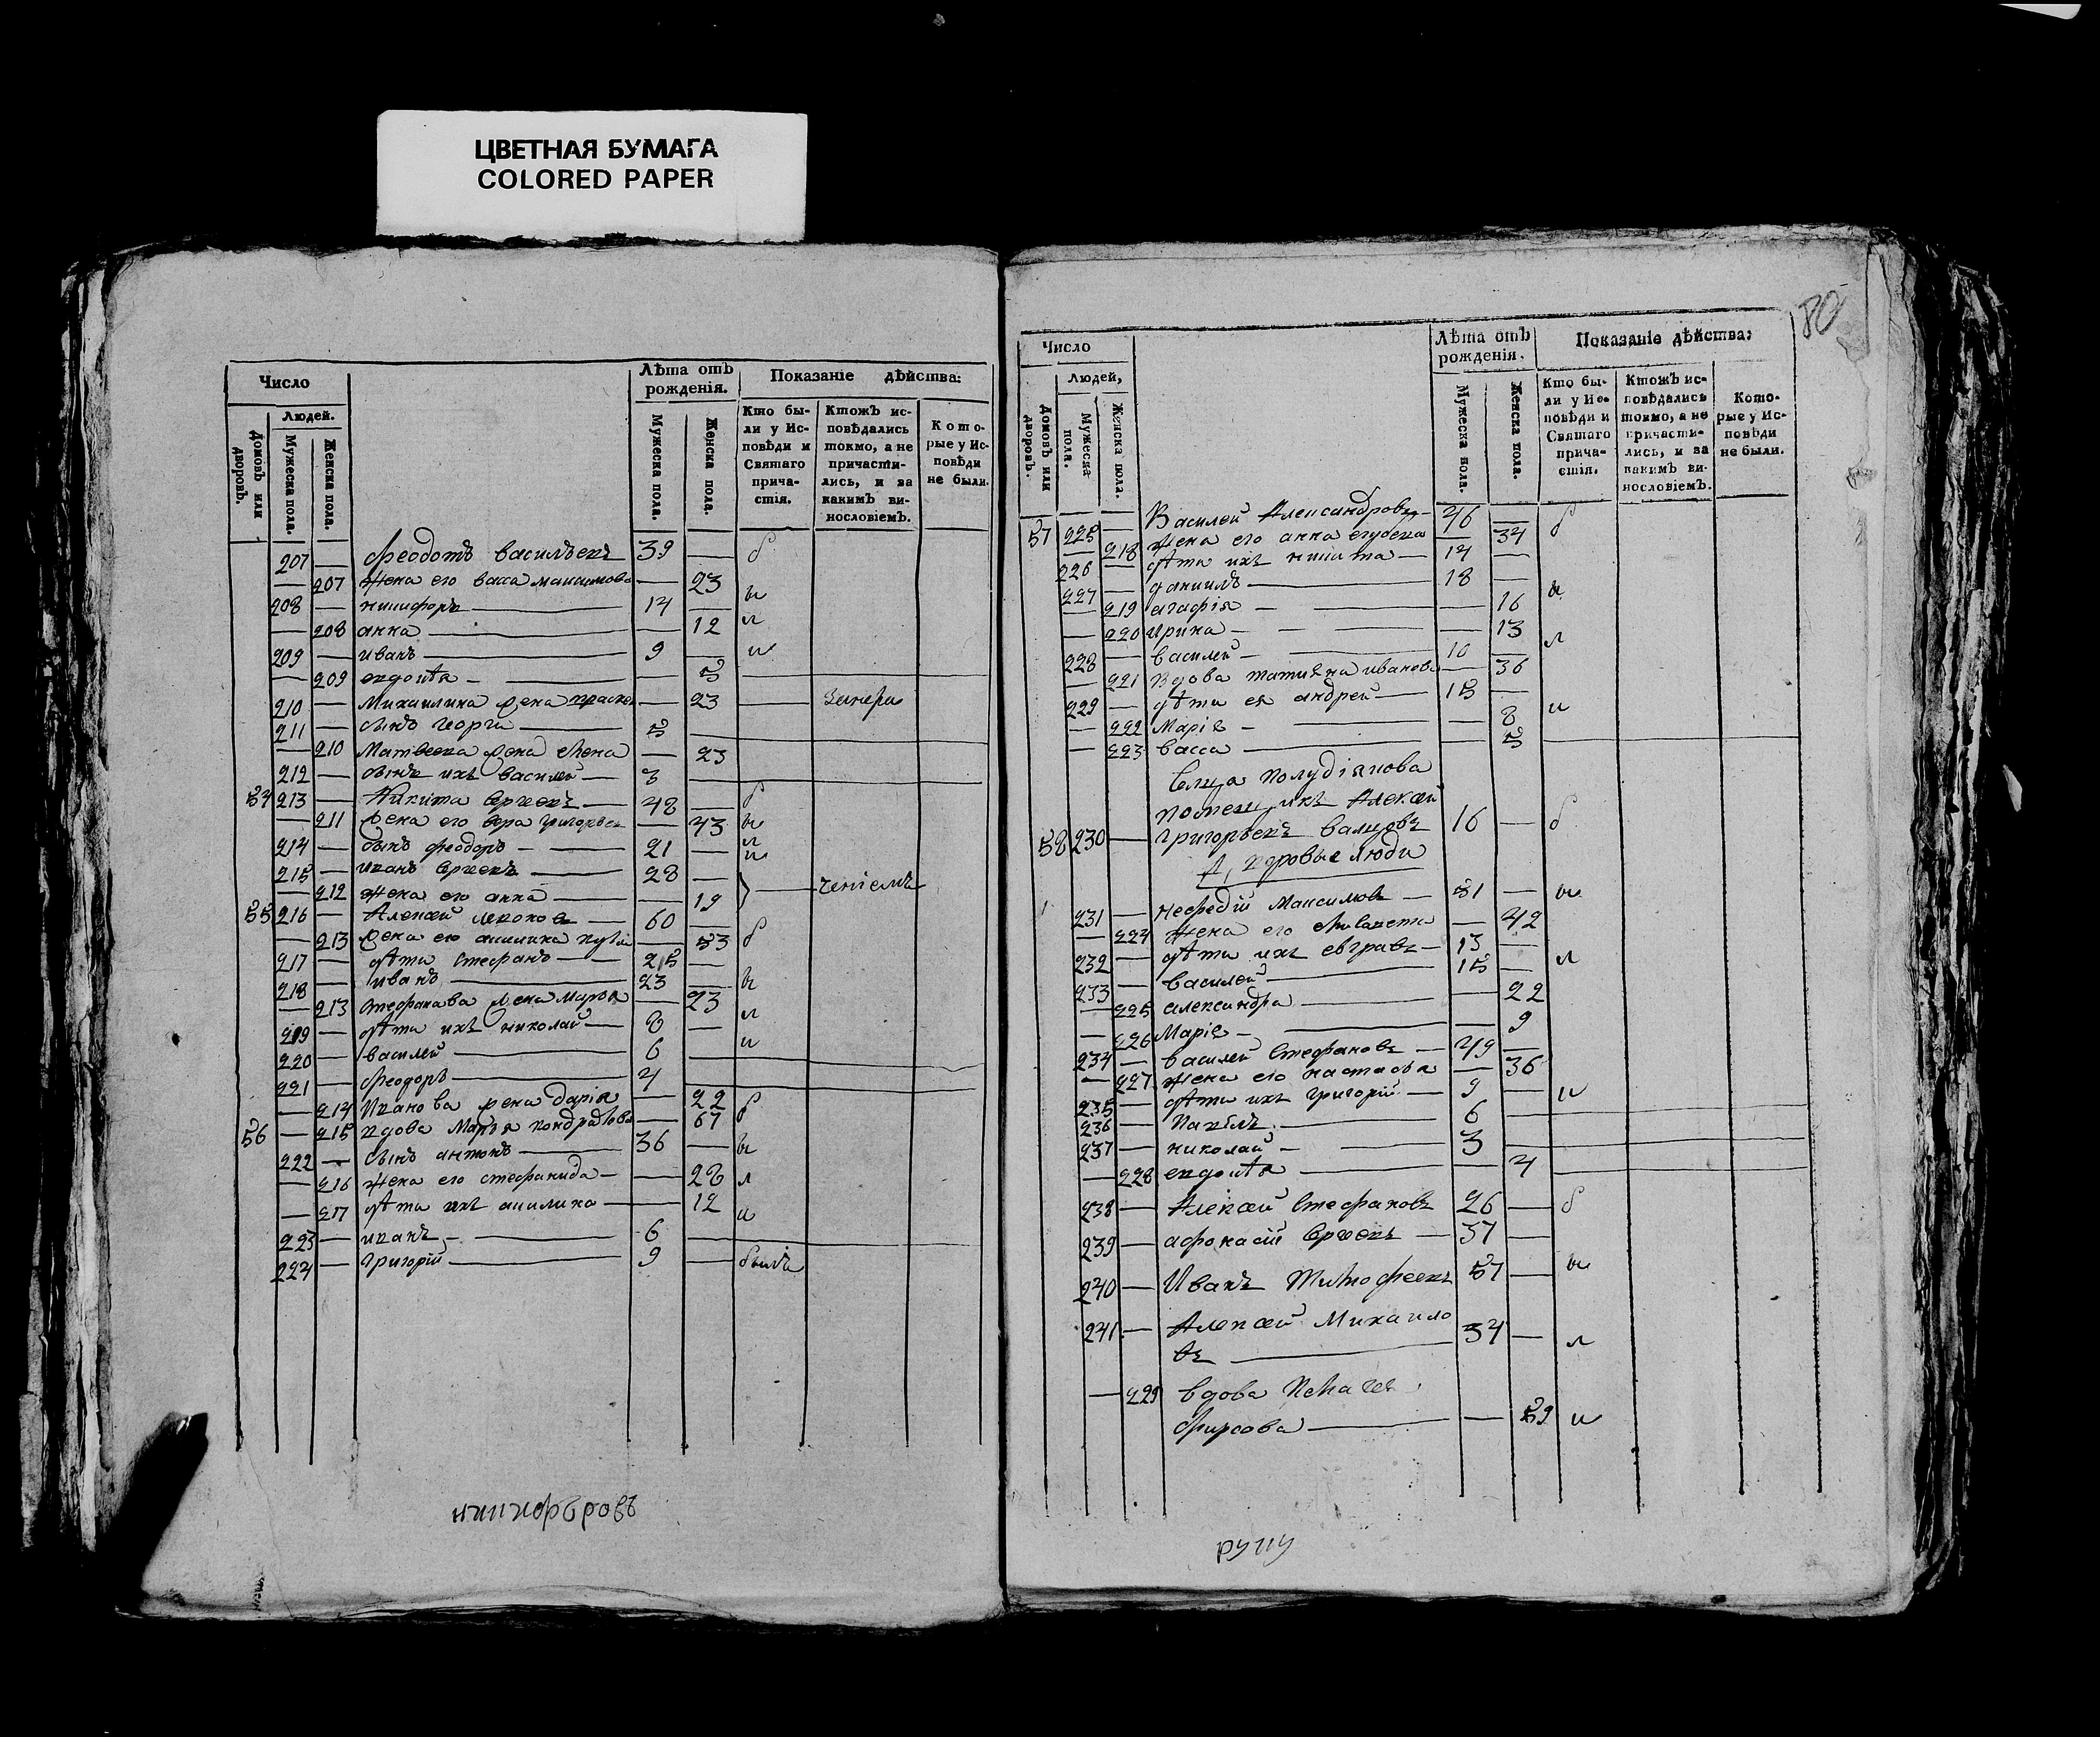 ЦВЕТНАЯ БУМАГА
COLORED PAPER
Число
Лѣта отъ рожденія.
Показаніе дѣйства:
Домовъ или дворовъ.
Людей.
Мужеска пола.
Женска пола.
Мужеска пола.
Женска пола.
Кто бы-
ли у Ис-
повѣди и
Святаго
прича-
стія.
Ктожъ ис-
повѣдались
токмо, а не
причасти-
лись, и за
какимъ ви-
нословіемъ.
Кото-
рые у Ис-
повѣди
не были.
207 — Феодотъ васильевъ 39 — б
— 207 Жена его васса максимова — 23
208 — никифоръ — 14 — ы
— 208 анна — 12 л
209 — иванъ — 9 — и
— 209 евдокѣя — 5
210 — Михаилина жена — 23
211 — сынъ георги — 5
— 210 Матвеева жена елена — 23
212 — сынъ ихъ василей — 3
54 213 — Никита — 48 — б
— 211 жена его вера григорьева — 43 ы
214 — сынъ феодоръ — 21 — л
215 — иванъ — 28 — и
— 212 жена его анна — 19
55 216 — Алексей — 60 —
— 213 жена его акилина — 53 б
217 — дѣти Стефанъ — 25 —
218 — иванъ — 23 — ы
— 213 Стефанова жена марья — 23
219 — дѣти ихъ николай — 8 — л
220 — василей — 6 — и
221 — феодоръ — 4
— 214 Иванова жена дарія — 22 б
56 — 215 вдова Марья кондратова — 67
222 — сынъ антонъ — 36 — ы
— 216 жена его стефанида — 28 л
— 217 дѣти ихъ акилина — 12 и
223 — иванъ — 6
224 — григорій — 9 — былъ
никифоровъ
80
Число
Лѣта отъ рожденія.
Показаніе дѣйства:
Домовъ или дворовъ.
Людей,
Мужеска пола.
Женска пола.
Мужеска пола.
Женска пола.
Кто бы-
ли у Ис-
повѣди и
Святаго
прича-
стія.
Ктожъ ис-
повѣдались
токмо, а не
причасти-
лись, и за
какимъ ви-
нословіемъ.
Кото-
рые у Ис-
повѣди
не были.
57 225 — Василей Александровъ — 46 — б
— 218 жена его анна — 34
226 — дѣти ихъ никита — 14 —
227 — даниилъ — 18 —
— 219 агафія — 16 ы
— 220 ирина — 13
228 — василей — 10 — л
— 221 вдова татияна иванова — 36
229 — дѣти ея андрей — 15 —
— 222 Марія — 8 и
— 223 васса — 5
Селца полудіянова
помещикъ Алексей
58 230 — григорьевъ — 16 — б
дворовые люди
231 — мефедій Максимовъ — 51 — ы
— 224 жена его — 42
232 — дѣти ихъ евграфъ — 13 —
233 — василей — 15 — л
— 225 александра — 22
— 226 Марія — 9
234 — василей Стефановъ — 49 —
— 227 жена его настасья — 36
235 — дѣти ихъ григорій — 9 — и
236 — павелъ — 6
237 — николай — 3
— 228 евдокѣя — 4
238 — Алексей Стефановъ 26 — б
239 — афонасій — 37 —
240 — Иванъ Тимофеевъ 54 — ы
241 — Алексей Михаило
въ — 34 — л
— 229 вдова
фирсова — 59 и
руку